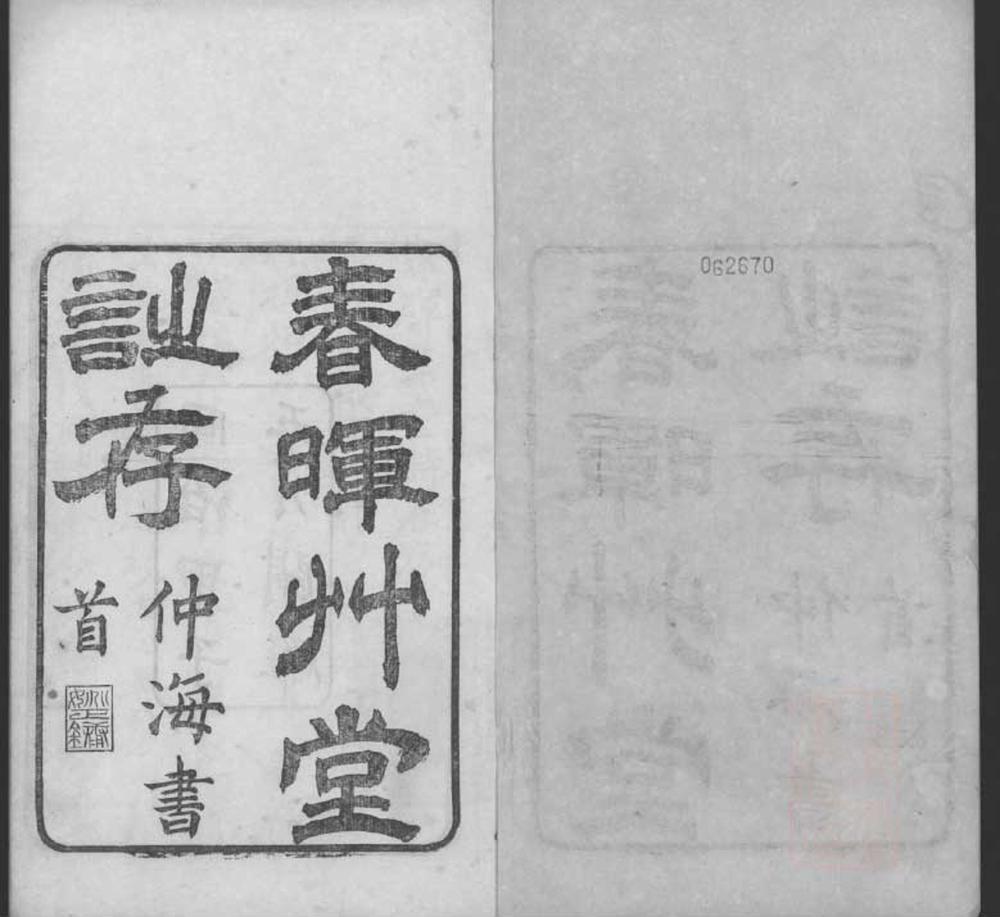 春暉艸堂
詩存
仲海書
首
062670